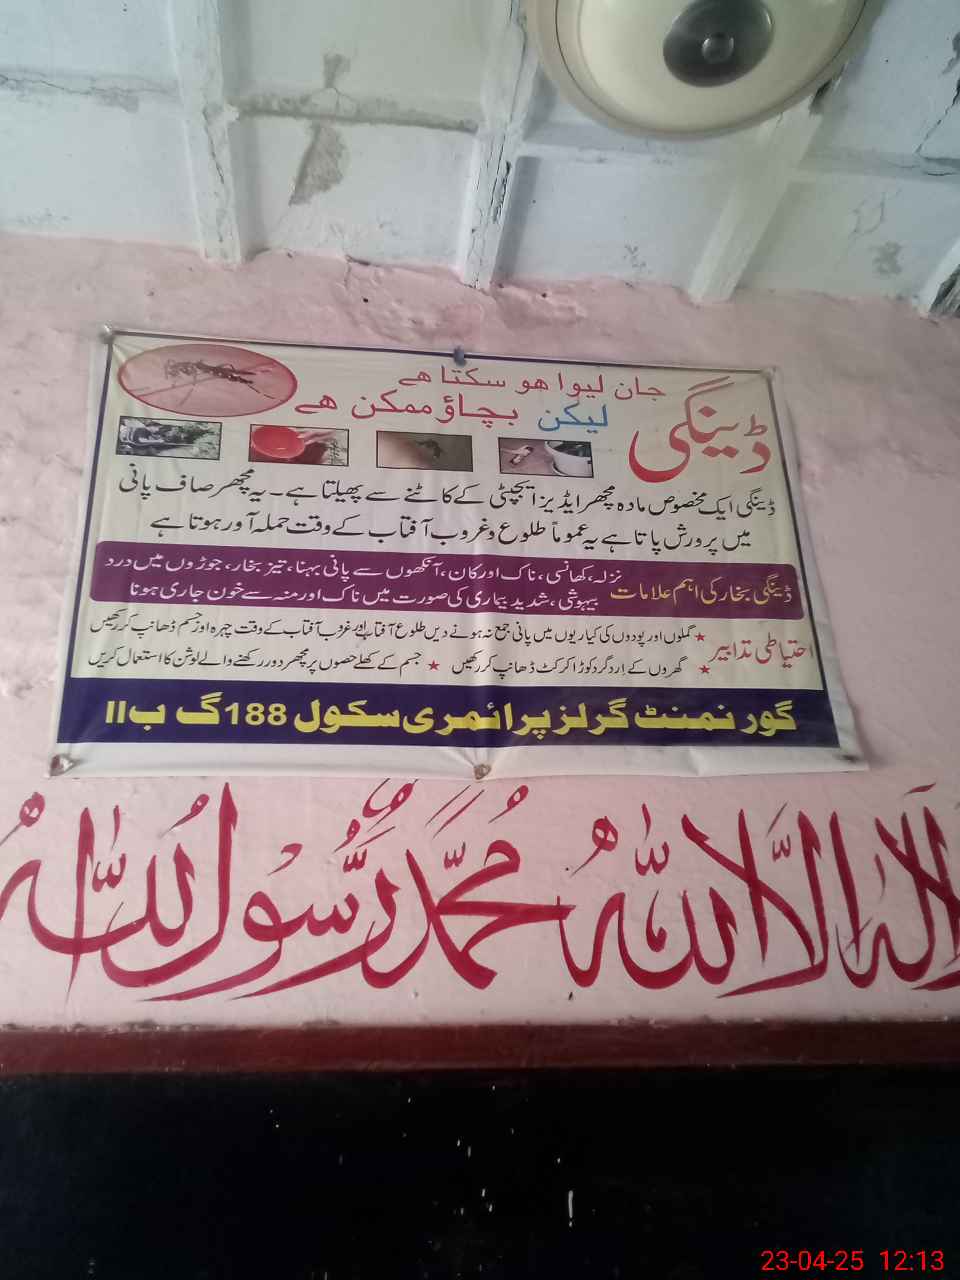 ڈینگی
جان لیوا ہو سکتا ہے
لیکن بچاؤ ممکن ہے
ڈینگی ایک مخصوص مادہ مچھر ایڈیز ایجپٹی کے کاٹنے سے پھیلتا ہے۔ یہ مچھر صاف پانی
میں پرورش پاتا ہے یہ عموماً طلوع و غروب آفتاب کے وقت حملہ آور ہوتا ہے
ڈینگی بخار کی اہم علامات
نزلہ، کھانسی، ناک اور کان، آنکھوں سے پانی بہنا، تیز بخار، جوڑوں میں درد
بیہوشی، شدید بیماری کی صورت میں ناک اور منہ سے خون جاری ہونا
احتیاطی تدابیر
★ گملوں اور پودوں کی کیاریوں میں پانی جمع نہ ہونے دیں طلوع آفتاب اور غروب آفتاب کے وقت چہرہ اور جسم ڈھانپ کر رکھیں
★ گھروں کے اردگرد کوڑا کرکٹ ڈھانپ کر رکھیں ★ جسم کے کھلے حصوں پر مچھر دور رکھنے والے لوشن کا استعمال کریں
گورنمنٹ گرلز پرائمری سکول 188 گ ب II
لَا اِلٰهَ اِلَّا اللّٰهُ مُحَمَّدٌ رَّسُوْلُ اللّٰهِ
23-04-25 12:13